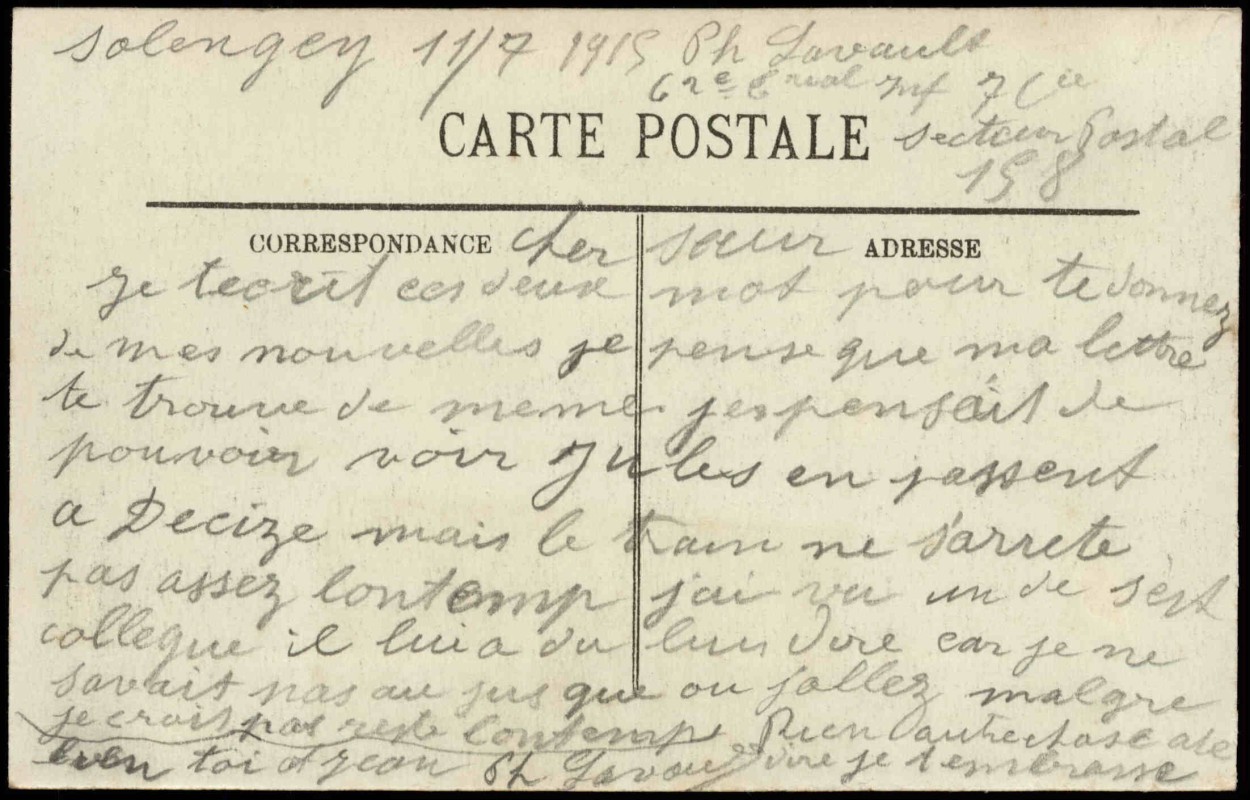 Solengey 11/7 1915 Ph Lavault
7 Cie
CARTE POSTALE secteur Postal
158
CORRESPONDANCE cher sœur ADRESSE
Je tecrit ces deux mot pour te donnez
de mes nouvelles je pense que ma lettre
te trouve de meme jespensait de
pouvoir voir Jules en passent
a Decize mais le train ne s'arrete
pas assez lontemp j'ai vu un de
collegue il lui a du lui dire car je ne
savait pas au jus que ou jallez malgre
je crois pas reste lontemp Rien autre chose a te
bien toi et Jean Ph Lavault dire je t'embrasse